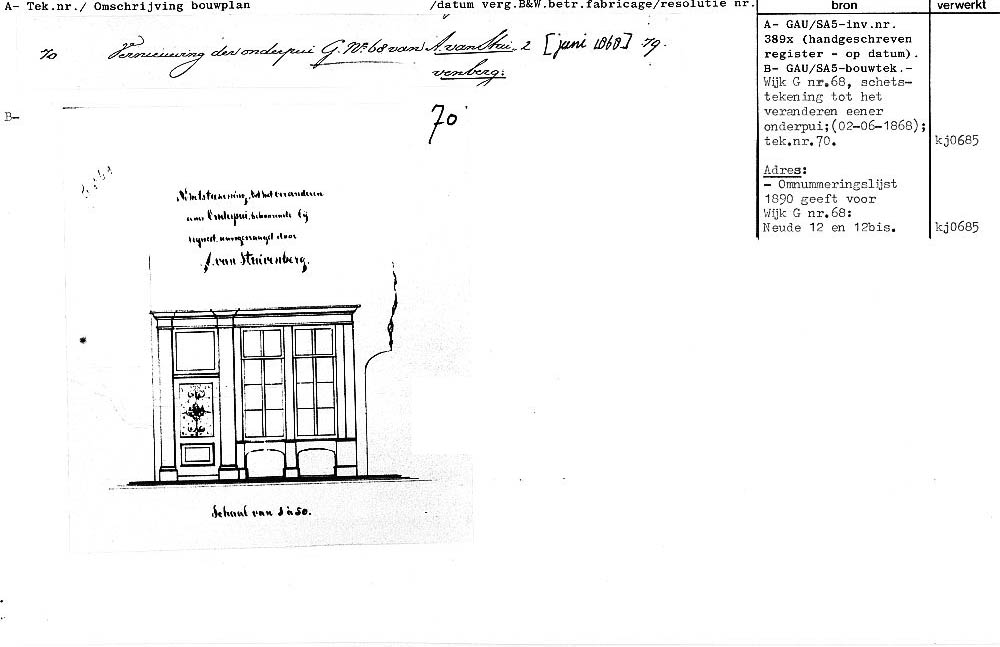 A- Tek.nr./ Omschrijving bouwplan /datum verg.B&W.betr.fabricage/resolutie nr.
bron
verwerkt
70 Vernieuwing der onderpui G. No 68 van A. van Stui- 2 [juni 1868] 79.
venberg.
B-
70
Schetsteekening, tot het veranderen
eener Onderpui, behoorende bij
request, aangevraagd door
A. van Stuivenberg.
Schaal van 1 à 50.
A- GAU/SA5-inv.nr.
389x (handgeschreven
register - op datum).
B- GAU/SA5-bouwtek.-
Wijk G nr.68, schets-
tekening tot het
veranderen eener
onderpui;(02-06-1868);
tek.nr.70. kj0685
Adres:
- Omnummeringslijst
1890 geeft voor
Wijk G nr.68:
Neude 12 en 12bis. kj0685